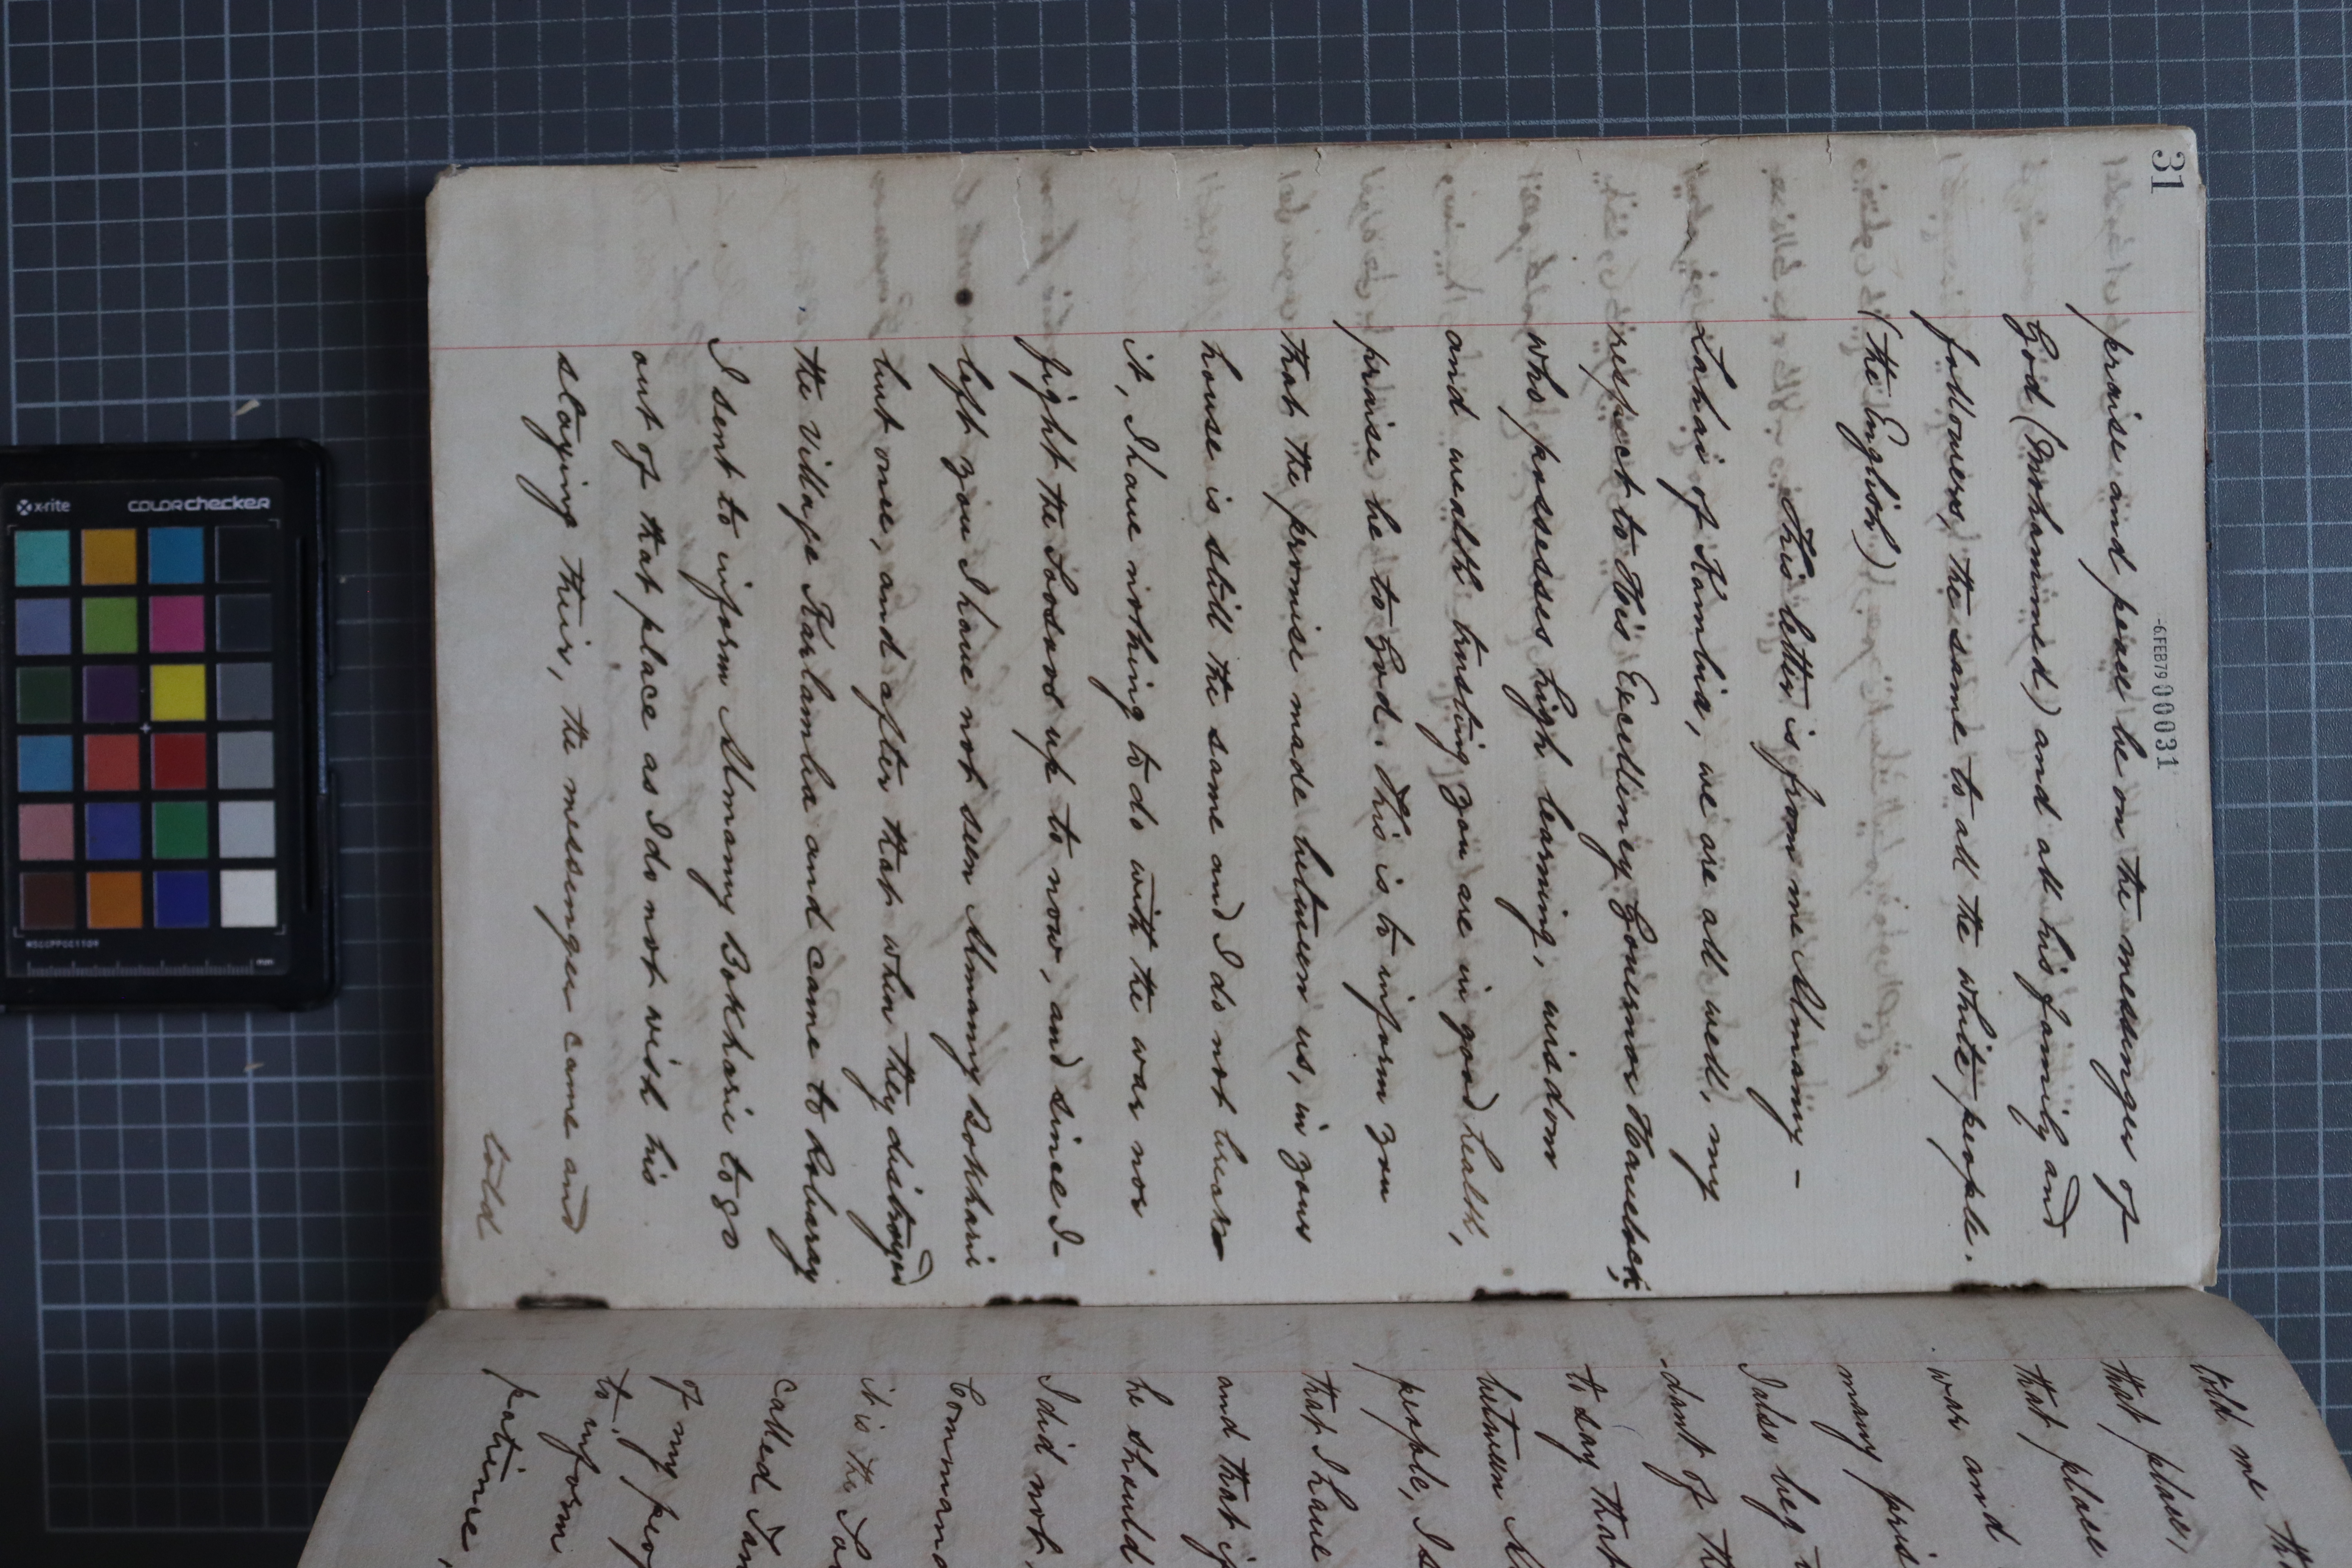 31
-6.FEB79 00031
praise and peace be on the messenger of
God (Mohammed) and all his family and
followers, the same to all the white people.
(the English)
This letter is from me Almamy -
Lahai of Kambia, we are all well. my
respect to His Excellency Governor Havelock,
who possesses high learning, wisdom
and wealth trusting you are in good health,
praise be to God. This is to inform you
that the promise made between us, in your
house is still the same and I do not break
it, I have nothing to do with the war nor
fight the Sosoos up to now, and since I-
left you I have not seen Almamy Bokharie
but once, and after that when they distroyed
the village and came to
I sent to inform Almamy Bokharie to go
out of that place as I do not wish his
staying their, the messenger came and
told
told me th
that place,
that place
war and
many pris
I also beg t
-dant of th
to say that
between
people, I s
that I have
and that if
he should
I did not
Command
it is the
called
of my peop
to inform
patience,
x-rite
COLORchecker
MSCCPPCC1109
mm